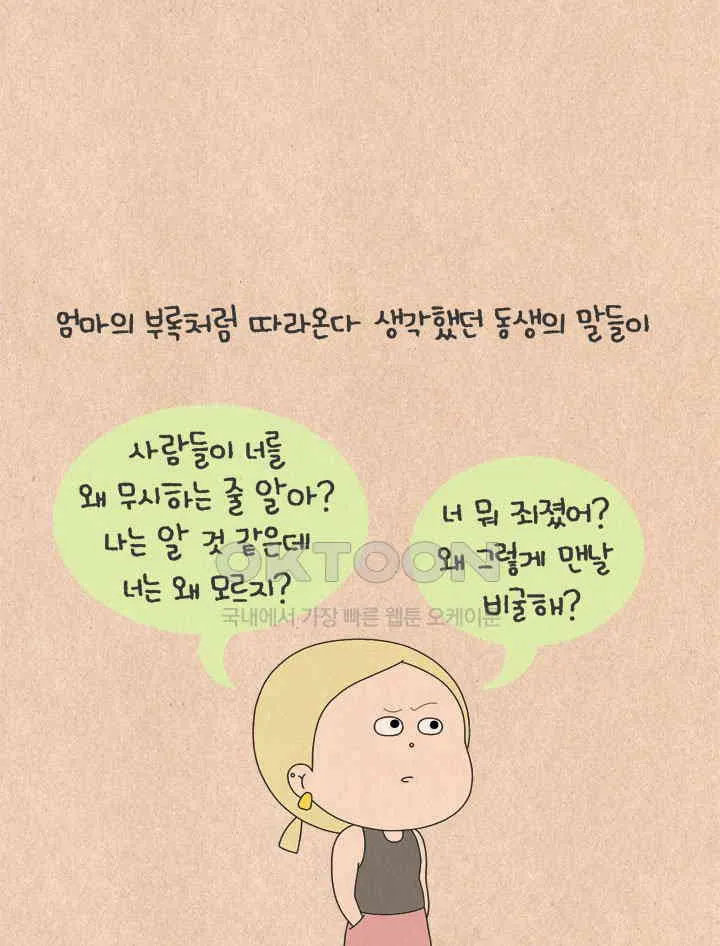 엄마의 부록처럼 따라온다 생각했던 동생의 말들이
사람들이 너를
왜 무시하는 줄 알아?
나는 알 것 같은데
너는 왜 모르지?
너 뭐 죄졌어?
왜 그렇게 맨날
비굴해?
OKTOON
국내에서 가장 빠른 웹툰 오케이툰